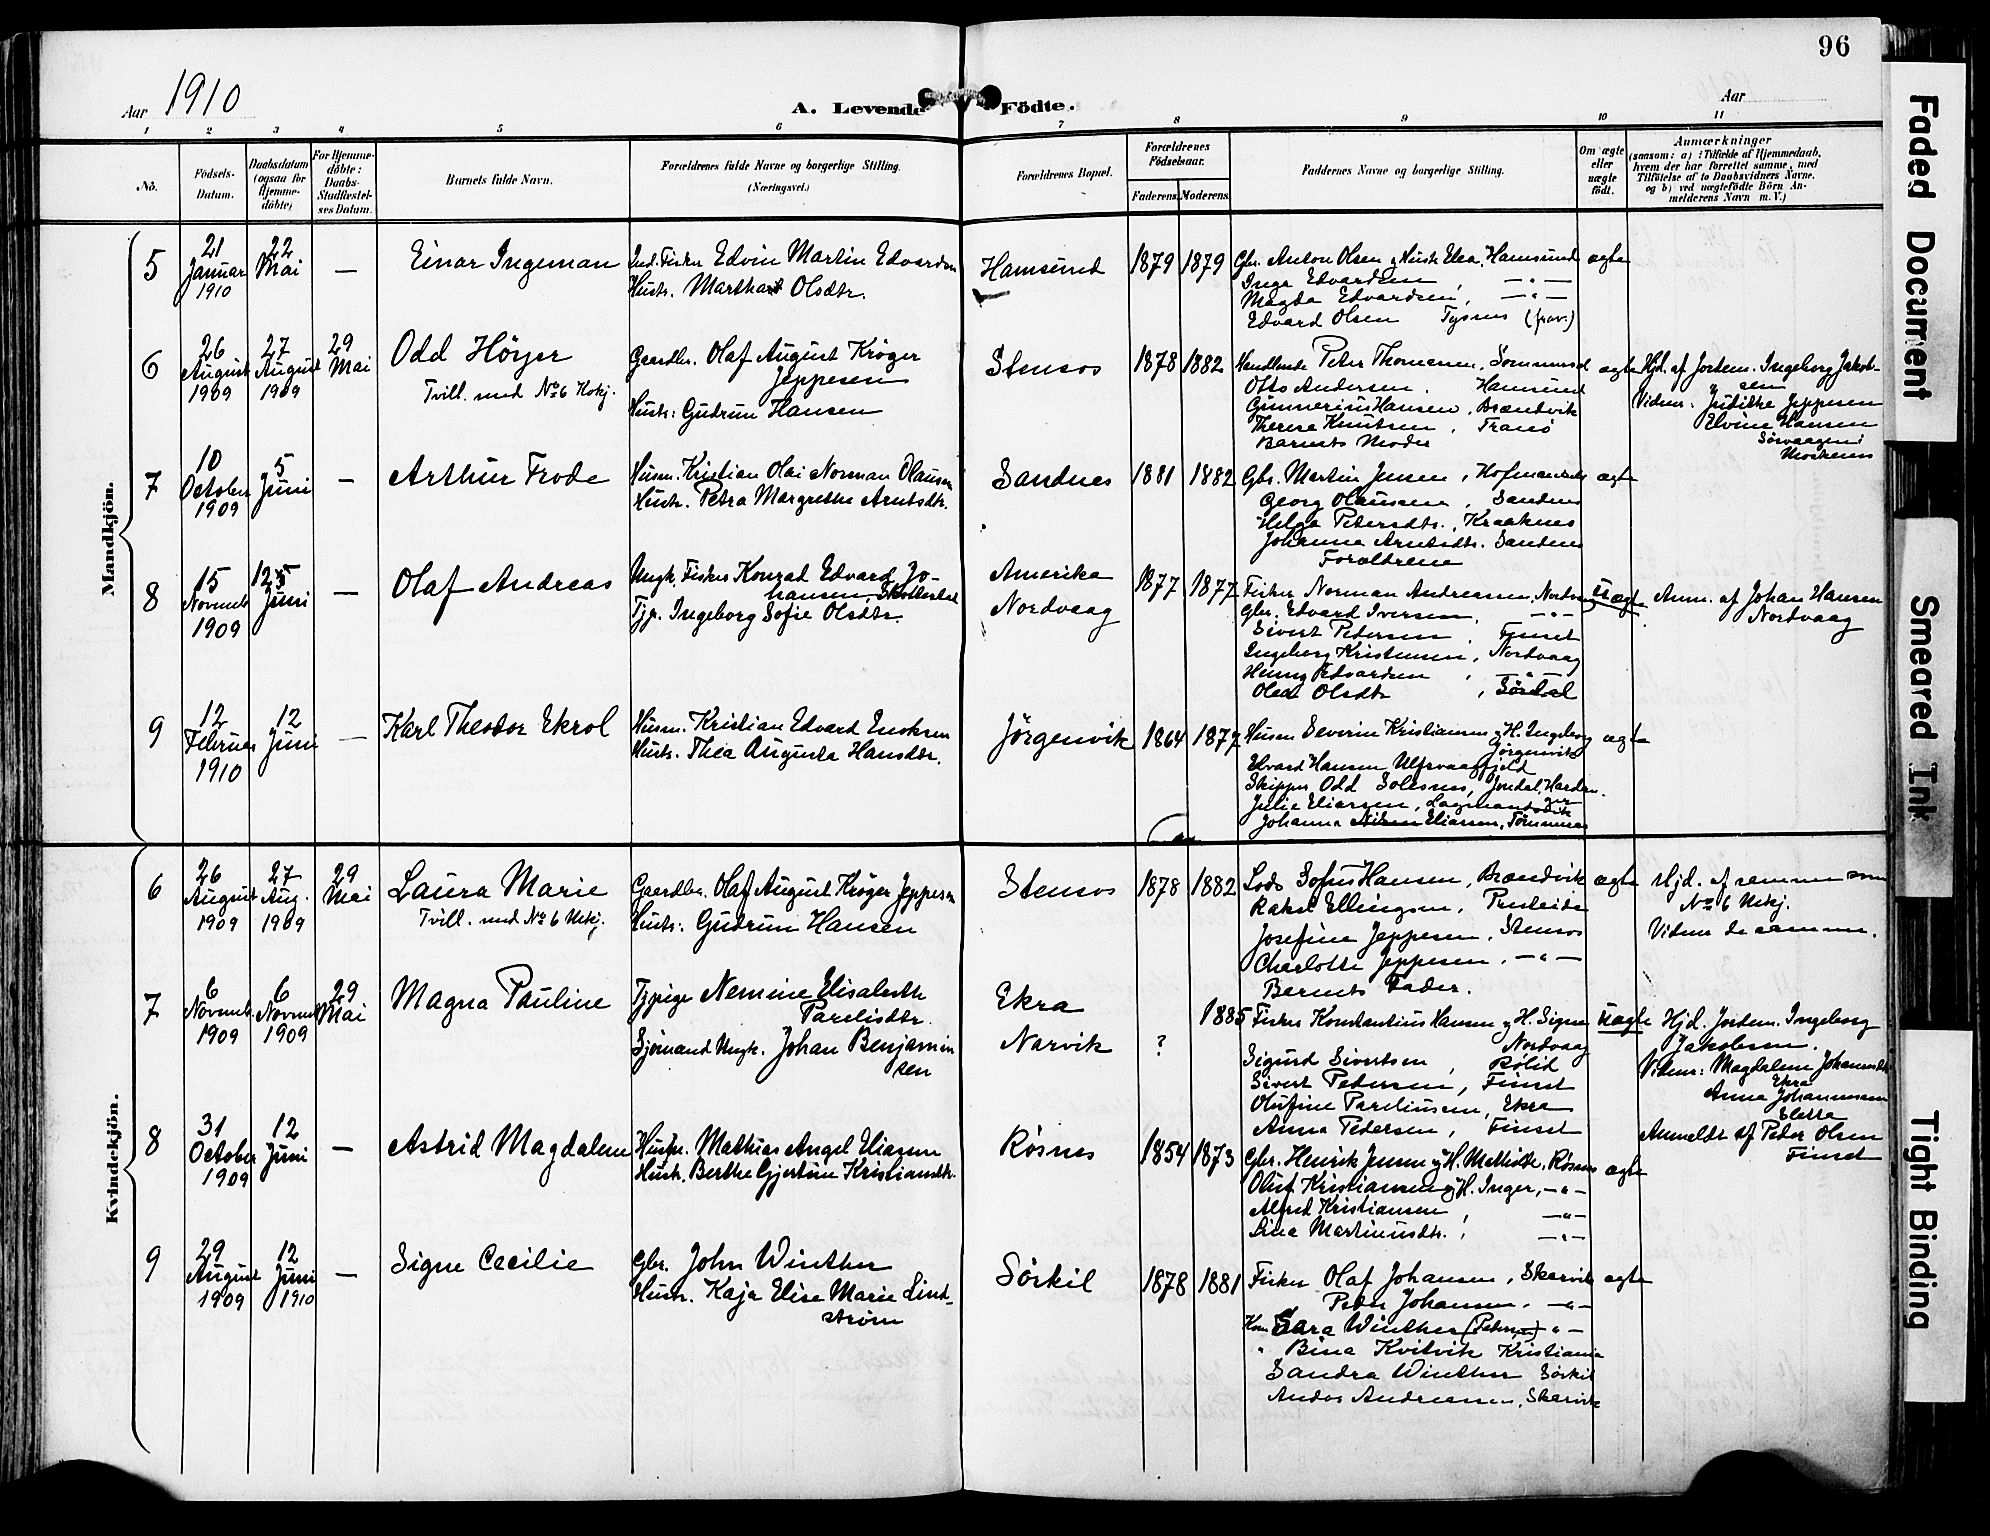 96
Aar 1910
A. Levende Födte.
Aar
1 2 3 4 5 6 7 8 9 10 11
No.
Födsels-
Datum.
Daabsdatum
(ogsaa for
Hjemme-
döbte)
For Hjemme-
döbte:
Daabs-
Stadfæstel-
ses Datum.
Barnets fulde Navn.
Forældrenes fulde Navne og borgerlige Stilling.
(Næringsvei.)
Forældrenes Bopæl.
Forældrenes
Födselsaar.
Faderens. Moderens.
Faddernes Navne og borgerlige Stilling.
Om ægte
eller
uægte
födt.
Anmærkninger
(saasom: a) i Tilfælde af Hjemmedaab,
hvem der har forrettet samme, med
Tilföielse af to Daabsvidners Navne,
og b) ved uægtefödte Börn An-
melderens Navn m. V.)
Mandkjön.
5
21
Januar
1910
22
Mai
—
Einar Ingeman
Ind. Fisker Edvin Martin Edvardsen
Hustr. Martha Olsdtr.
Hamsund
1879 1879
Gbr. Anton Olsen og Hustr. Elea, Hamsund
Inga Edvardsen, — " —
Magda Edvardsen, — " —
Edvard Olsen Tysnes (frav.)
ægte
6
26
August
1909
27
August
1909
29
Mai
Odd Höyer
Tvill. med No 6 Kvkj.
Gaardbr. Olaf August Krøger
Jeppesen
Hustr: Gudrun Hansen
Stensos
1878 1882
Handlende Peter Thomassen, Sommersel
Otto Andersen, Hamsund
Gunnerius Hansen, Brændvik
Therese Knutsen, Tranö
Barnets Moder
ægte
Hjd. af Jordem. Ingeborg Jakob-
sen
Vidner: Judithe Jeppesen
Elvine Hansen
Sörvaagen i
Moskenes
7
10
October
1909
5
Juni
—
Arthur Frode
Husm. Kristian Olai Norman Olausen
Hustr. Petra Margrethe Arntsdtr.
Sandnes
1881 1882
Gbr. Martin Jensen, Hofmannsnes
Georg Olaussen, Sandnes
Helga Petersdtr., Kraaknes
Johanna Arntsdtr. Sandnes
Forældrene
ægte
8
15
Novemb.
1909
12
Juni
—
Olaf Andreas
Ungk. Fisker Konrad Edvard Jo-
hansen,
Tjp. Ingeborg Sofie Olsdtr.
Amerika
Nordvaag
1877 1877
Fisker Norman Andreassen, Nordvaag
Gbr. Edvard Iversen, — " —
Sivert Pedersen, Finset
Ingeborg Kristensen, Nordvaag
Henny Edvardsen, — " —
Olea Olsdtr,
Uægte
Anm. af Johan Hansen
Nordvaag
9
12
Februar
1910
12
Juni
—
Karl Theodor Ekrol
Husm. Kristian Edvard Enoksen
Hustr. Thea Augusta Hansdtr.
Jörgenvik
1864 1872
Husm Severin Kristiansen og H. Ingeborg
Jörgenvik
Edvard Hansen Ulfsvaagfjeld
Skipper Odd Solesnes, Jondal, Hardan-
ger
Julie Eliassen, Lagmandsvik
Johanna Eliassen, Tömmernes
ægte
Kvindekjön.
6
26
August
1909
27
Aug.
1909
29
Mai
Laura Marie
Tvill. med No 6 Mkj.
Gaardbr. Olaf August Krøger Jeppesen
Hustr: Gudrun Hansen
Stensos
1878 1882
Lods Sofus Hansen, Brændvik
Rakel Ellingsen, Presteide
Josefine Jeppesen, Stensos
Charlotte Jeppesen, — " —
Barnets Fader.
ægte
Hjd. af samme som
No 6 Mkj.
Vidner de samme.
7
6
Novemb.
1909
6
Novemb
1909
29
Mai
Magna Pauline
Tjpige Nemine Elisabeth
Parelisdtr.
Sjömand Ungk. Johan Benjamin
sen
Ekra
Narvik
? 1885
Fisker Konstantius Hansen og H. Signe
Nordvaag
Sigurd Sivertsen, Rölid
Sivert Pedersen, Finset
Olufine Pareliussen, Ekra
Anna Pedersen, Finset
Uægte
Hjd. Jordem. Ingeborg
Jakobsen.
Vidner: Magdalena Johannesdtr
Ekra
Anna Johannessen
Sletta
Anmeldt af Peder Olsen
Finset
8
31
October
1909
12
Juni
—
Astrid Magdalene
Husm. Mathias Angel Eliassen
Hustr. Berthe Gjertine Kristiansdtr.
Rösnes
1854 1873
Gbr. Henrik Jensen og H. Mathilde, Rösnes
Oluf Kristiansen og H. Inger, — " —
Alfred Kristiansen, — " —
Lina Martinusdtr., — " —
ægte
9
29
August
1909
12
Juni
1910
—
Signe Cecilie
Gbr. John Winther
Hustr. Kaja Elise Marie Lind-
ström
Sörkil
1878 1881
Fisker Olaf Johansen, Skarvik
Peder Johansen, — " —
Kone Sara Winther (Petersen) — " —
" Bina Kvitvik Kristiania
Sandra Winther Sörkil
Andor Andreassen, Skarvik
ægte
Faded Document
Smeared Ink
Tight Binding